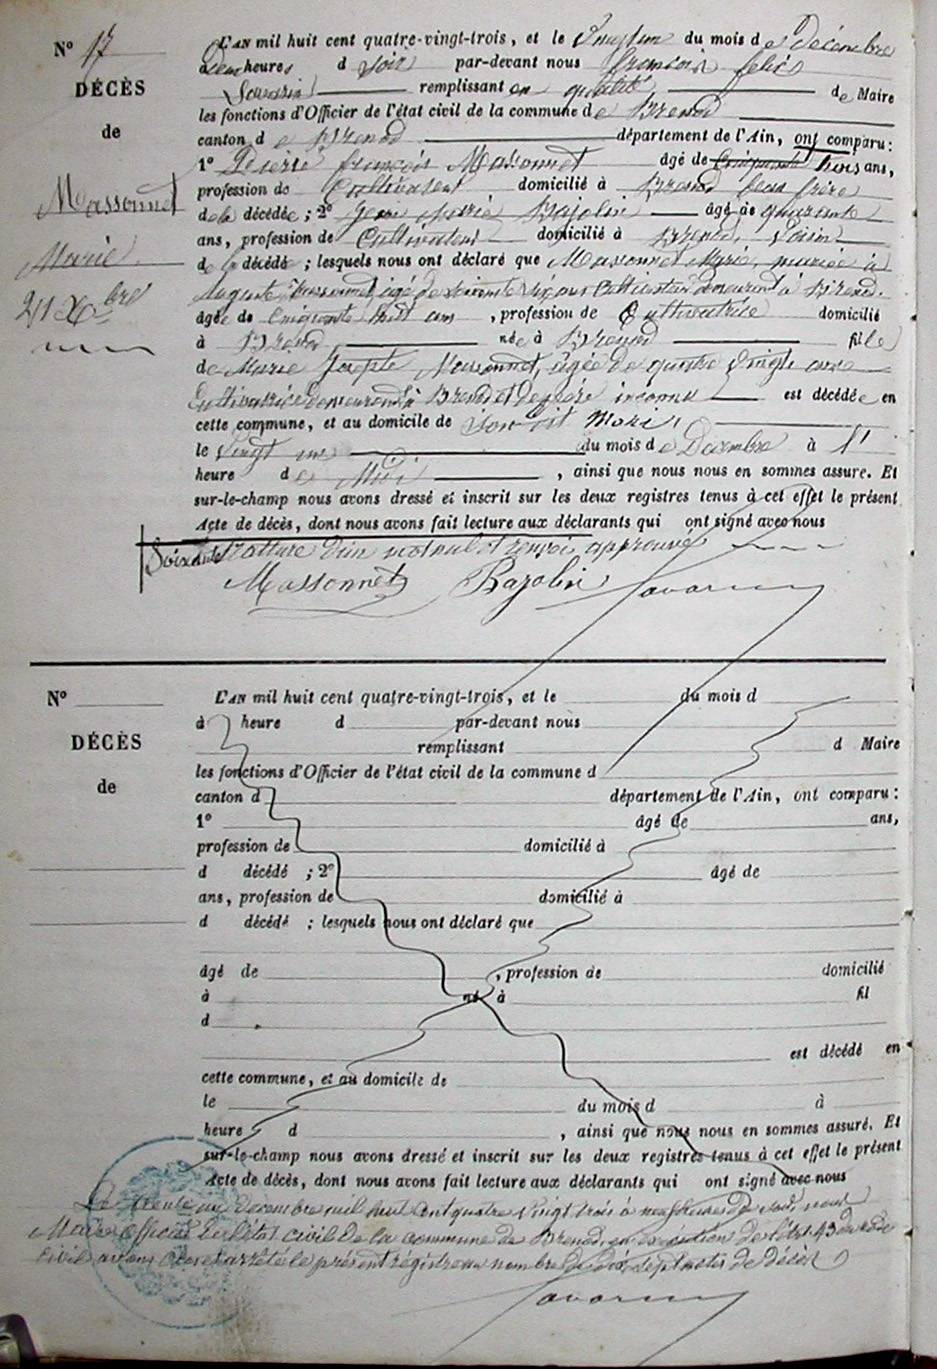 N° 17
DÉCÈS
de
Massonnet
Marie
21 Xbre
L'AN mil huit cent quatre-vingt-trois, et le Vingt un du mois de Décembre
à Deux heures d soir par-devant nous françois felix
Savarin remplissant en qualité de Maire
les fonctions d'Officier de l'état civil de la commune de Brenod
canton de Brenod département de l'Ain, ont comparu:
1° françois Massonnet âgé de Cinquante trois ans,
profession de Cultivateur domicilié à Brenod beau frère
de la décédée; 2° Marie Bajolin âgé de quarante
ans, profession de Cultivateur domicilié à Brenod, Voisin
de la décédé; lesquels nous ont déclaré que Massonnet Marie, mariée à
Auguste âgé de Soixante Six ans Cultivateur demeurant à Brenod.
âgée de Cinquante huit ans, profession de Cultivatrice domicilié
à Brenod, née à Brenod fille
de Marie Josephte Massonnet, âgée de quatre Vingts ans
Cultivatrice demeurant à Brenod et de père inconnu est décédée en
cette commune, et au domicile de son dit Mari,
le Vingt un du mois de Décembre à l'
heure de Midi, ainsi que nous nous en sommes assuré. Et
sur-le-champ nous avons dressé et inscrit sur les deux registres tenus à cet effet le présent
Acte de décès, dont nous avons fait lecture aux déclarants qui ont signé avec nous
Soixante Rature d'un mot nul et renvoi approuvé
Massonnet Bajolin Savarin
N°
DÉCÈS
de
L'AN mil huit cent quatre-vingt-trois, et le du mois d
à heure d par-devant nous
remplissant d Maire
les fonctions d'Officier de l'état civil de la commune d
canton d département de l'Ain, ont comparu:
1° âgé de ans,
profession de domicilié à
d décédé; 2° âgé de
ans, profession de domicilié à
d décédé; lesquels nous ont déclaré que
âgé de, profession de domicilié
à né à fil
d
est décédé en
cette commune, et au domicile de
le du mois d à
heure d, ainsi que nous nous en sommes assuré. Et
sur-le-champ nous avons dressé et inscrit sur les deux registres tenus à cet effet le présent
Acte de décès, dont nous avons fait lecture aux déclarants qui ont signé avec nous
Le trente un décembre mil huit cent quatre Vingt trois à neuf heures du soir, nous
Maire Officier de l'état civil de la commune de Brenod, en exécution de l'art. 43 du code
Civil avons clos et arrêté le présent régistre au nombre de dix sept actes de décès
Savarin